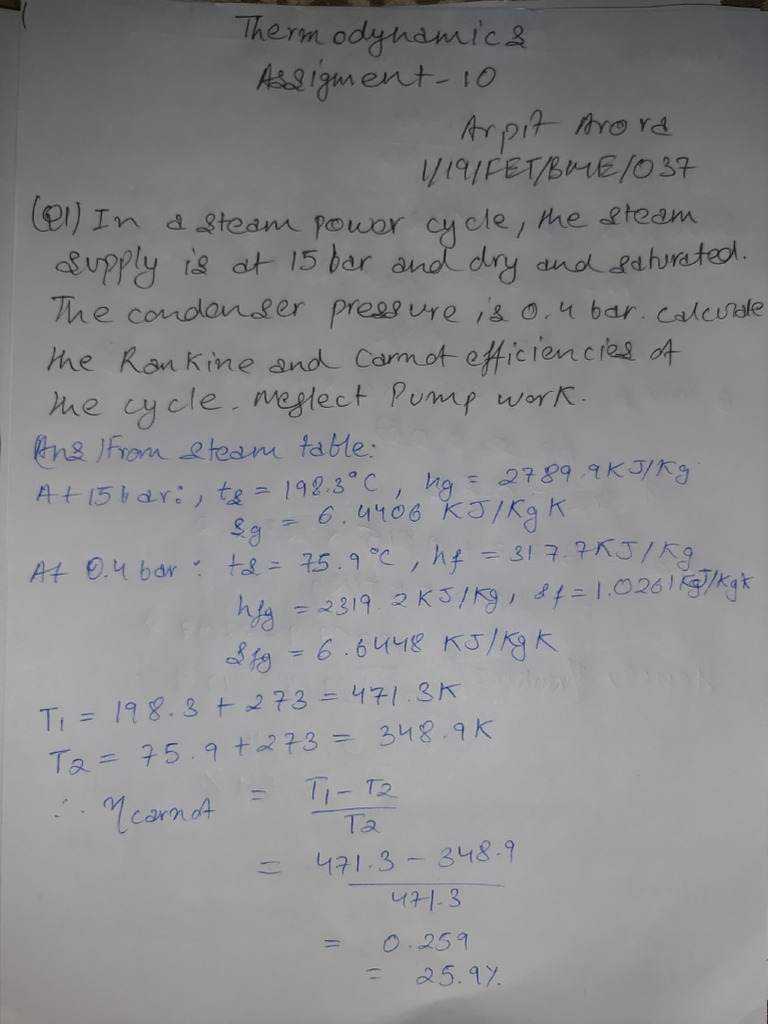 Thermodynamics
Assigment-10
Arpit Arora
1/19/FET/BME/037
(Q1) In a steam power cycle, the steam
supply is at 15 bar and dry and saturated.
The condenser pressure is 0.4 bar. calculate
the Rankine and Carnot efficiencies of
the cycle. Neglect Pump work.
Ans) From steam table:
At 15 bar:, ts = 198.3°C, hg = 2789.9 KJ/Kg
sg = 6.4406 KJ/Kg K
At 0.4 bar: ts = 75.9°C, hf = 317.7 KJ/Kg
hfg = 2319.2 KJ/Kg, sf = 1.0261 KJ/KgK
sfg = 6.6448 KJ/Kg K
T1 = 198.3 + 273 = 471.3K
T2 = 75.9 + 273 = 348.9K
∴ ηcarnot = T1 - T2
T2
= 471.3 - 348.9
471.3
= 0.259
= 25.9%